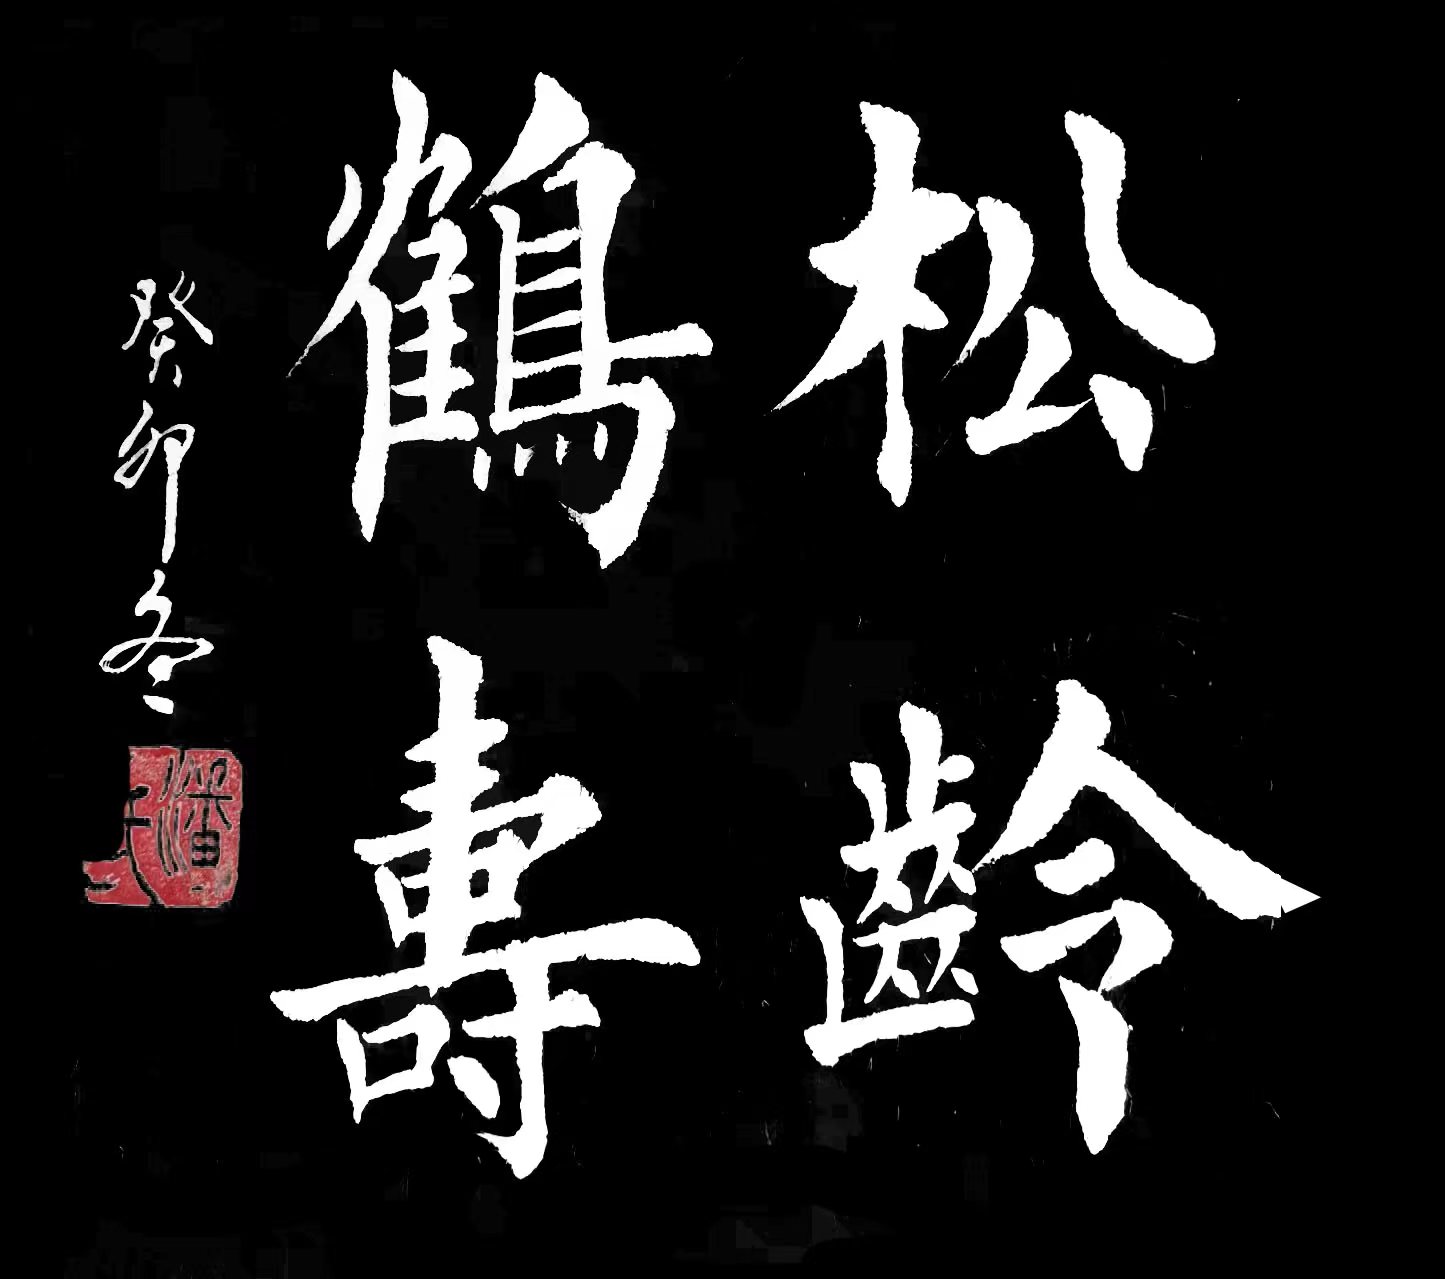 松齡
鶴壽
癸卯冬
潘